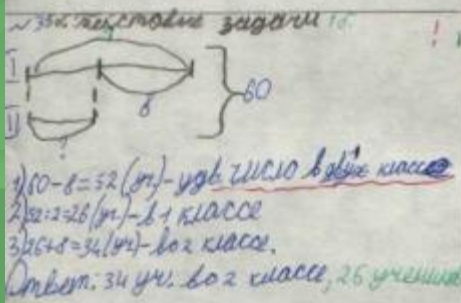 текстовые задачи
!
I
8
60
II
?
1) 60-8=52 (уч)-удв. число в двух классах
2) 52:2=26 (уч)-в 1 классе
3) 26+8=34 (уч)-во 2 классе.
Ответ: 34 уч. во 2 классе, 26 учеников